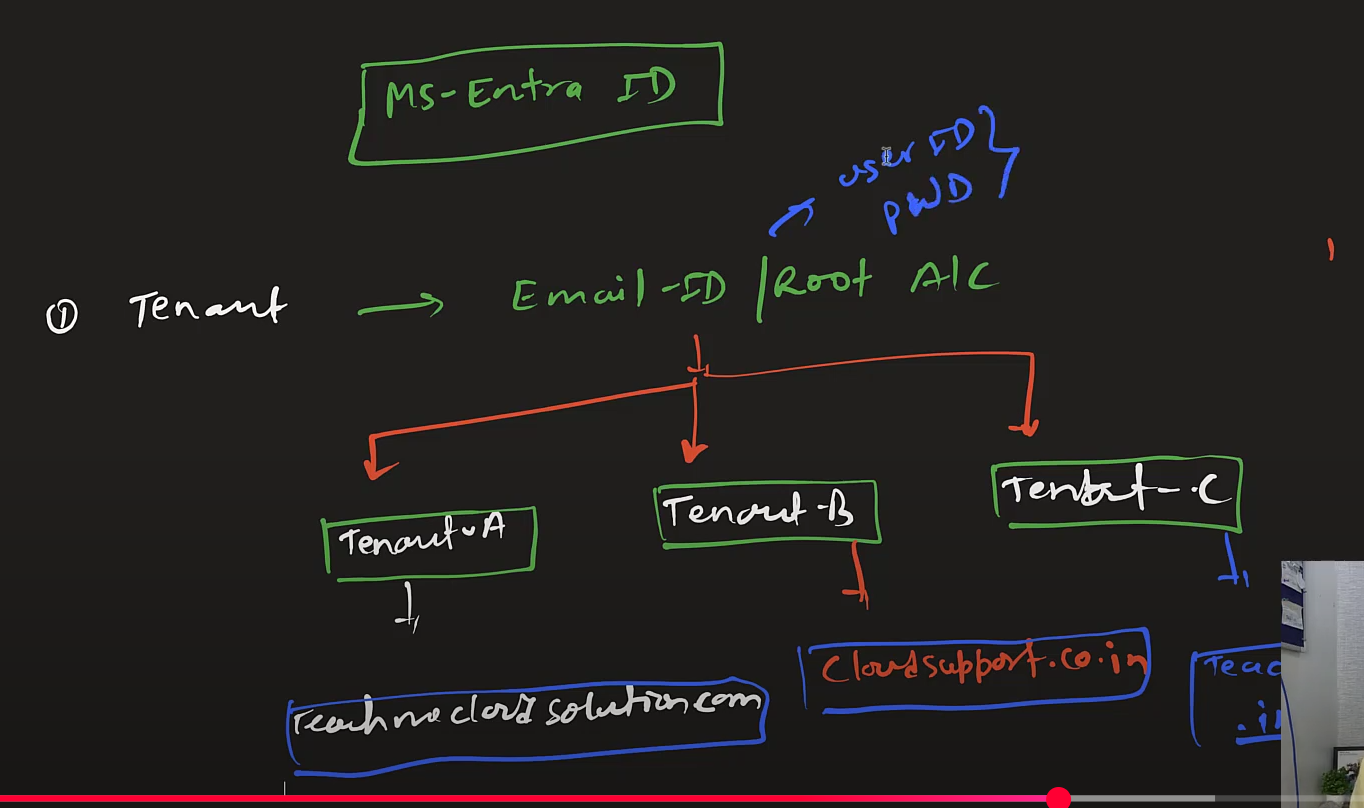 MS-Entra ID
user ID
PWD
① Tenant → Email-ID | Root A/C
Tenant-A
Tenant-B
-C
teachmecloudsolution.com
Cloudsupport.co.in
Teac
.in